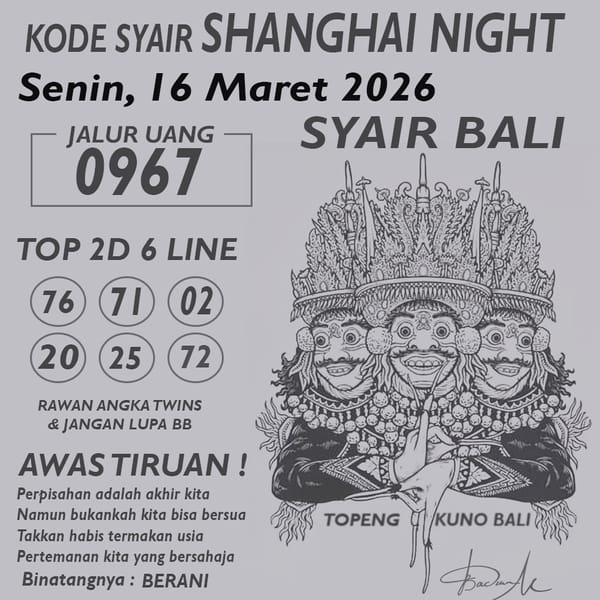 KODE SYAIR SHANGHAI NIGHT
Senin, 16 Maret 2026
JALUR UANG
0967
SYAIR BALI
TOP 2D 6 LINE
76 71 02
20 25 72
RAWAN ANGKA TWINS
& JANGAN LUPA BB
AWAS TIRUAN !
Perpisahan adalah akhir kita
Namun bukankah kita bisa bersua
Takkan habis termakan usia
Pertemanan kita yang bersahaja
Binatangnya : BERANI
TOPENG KUNO BALI